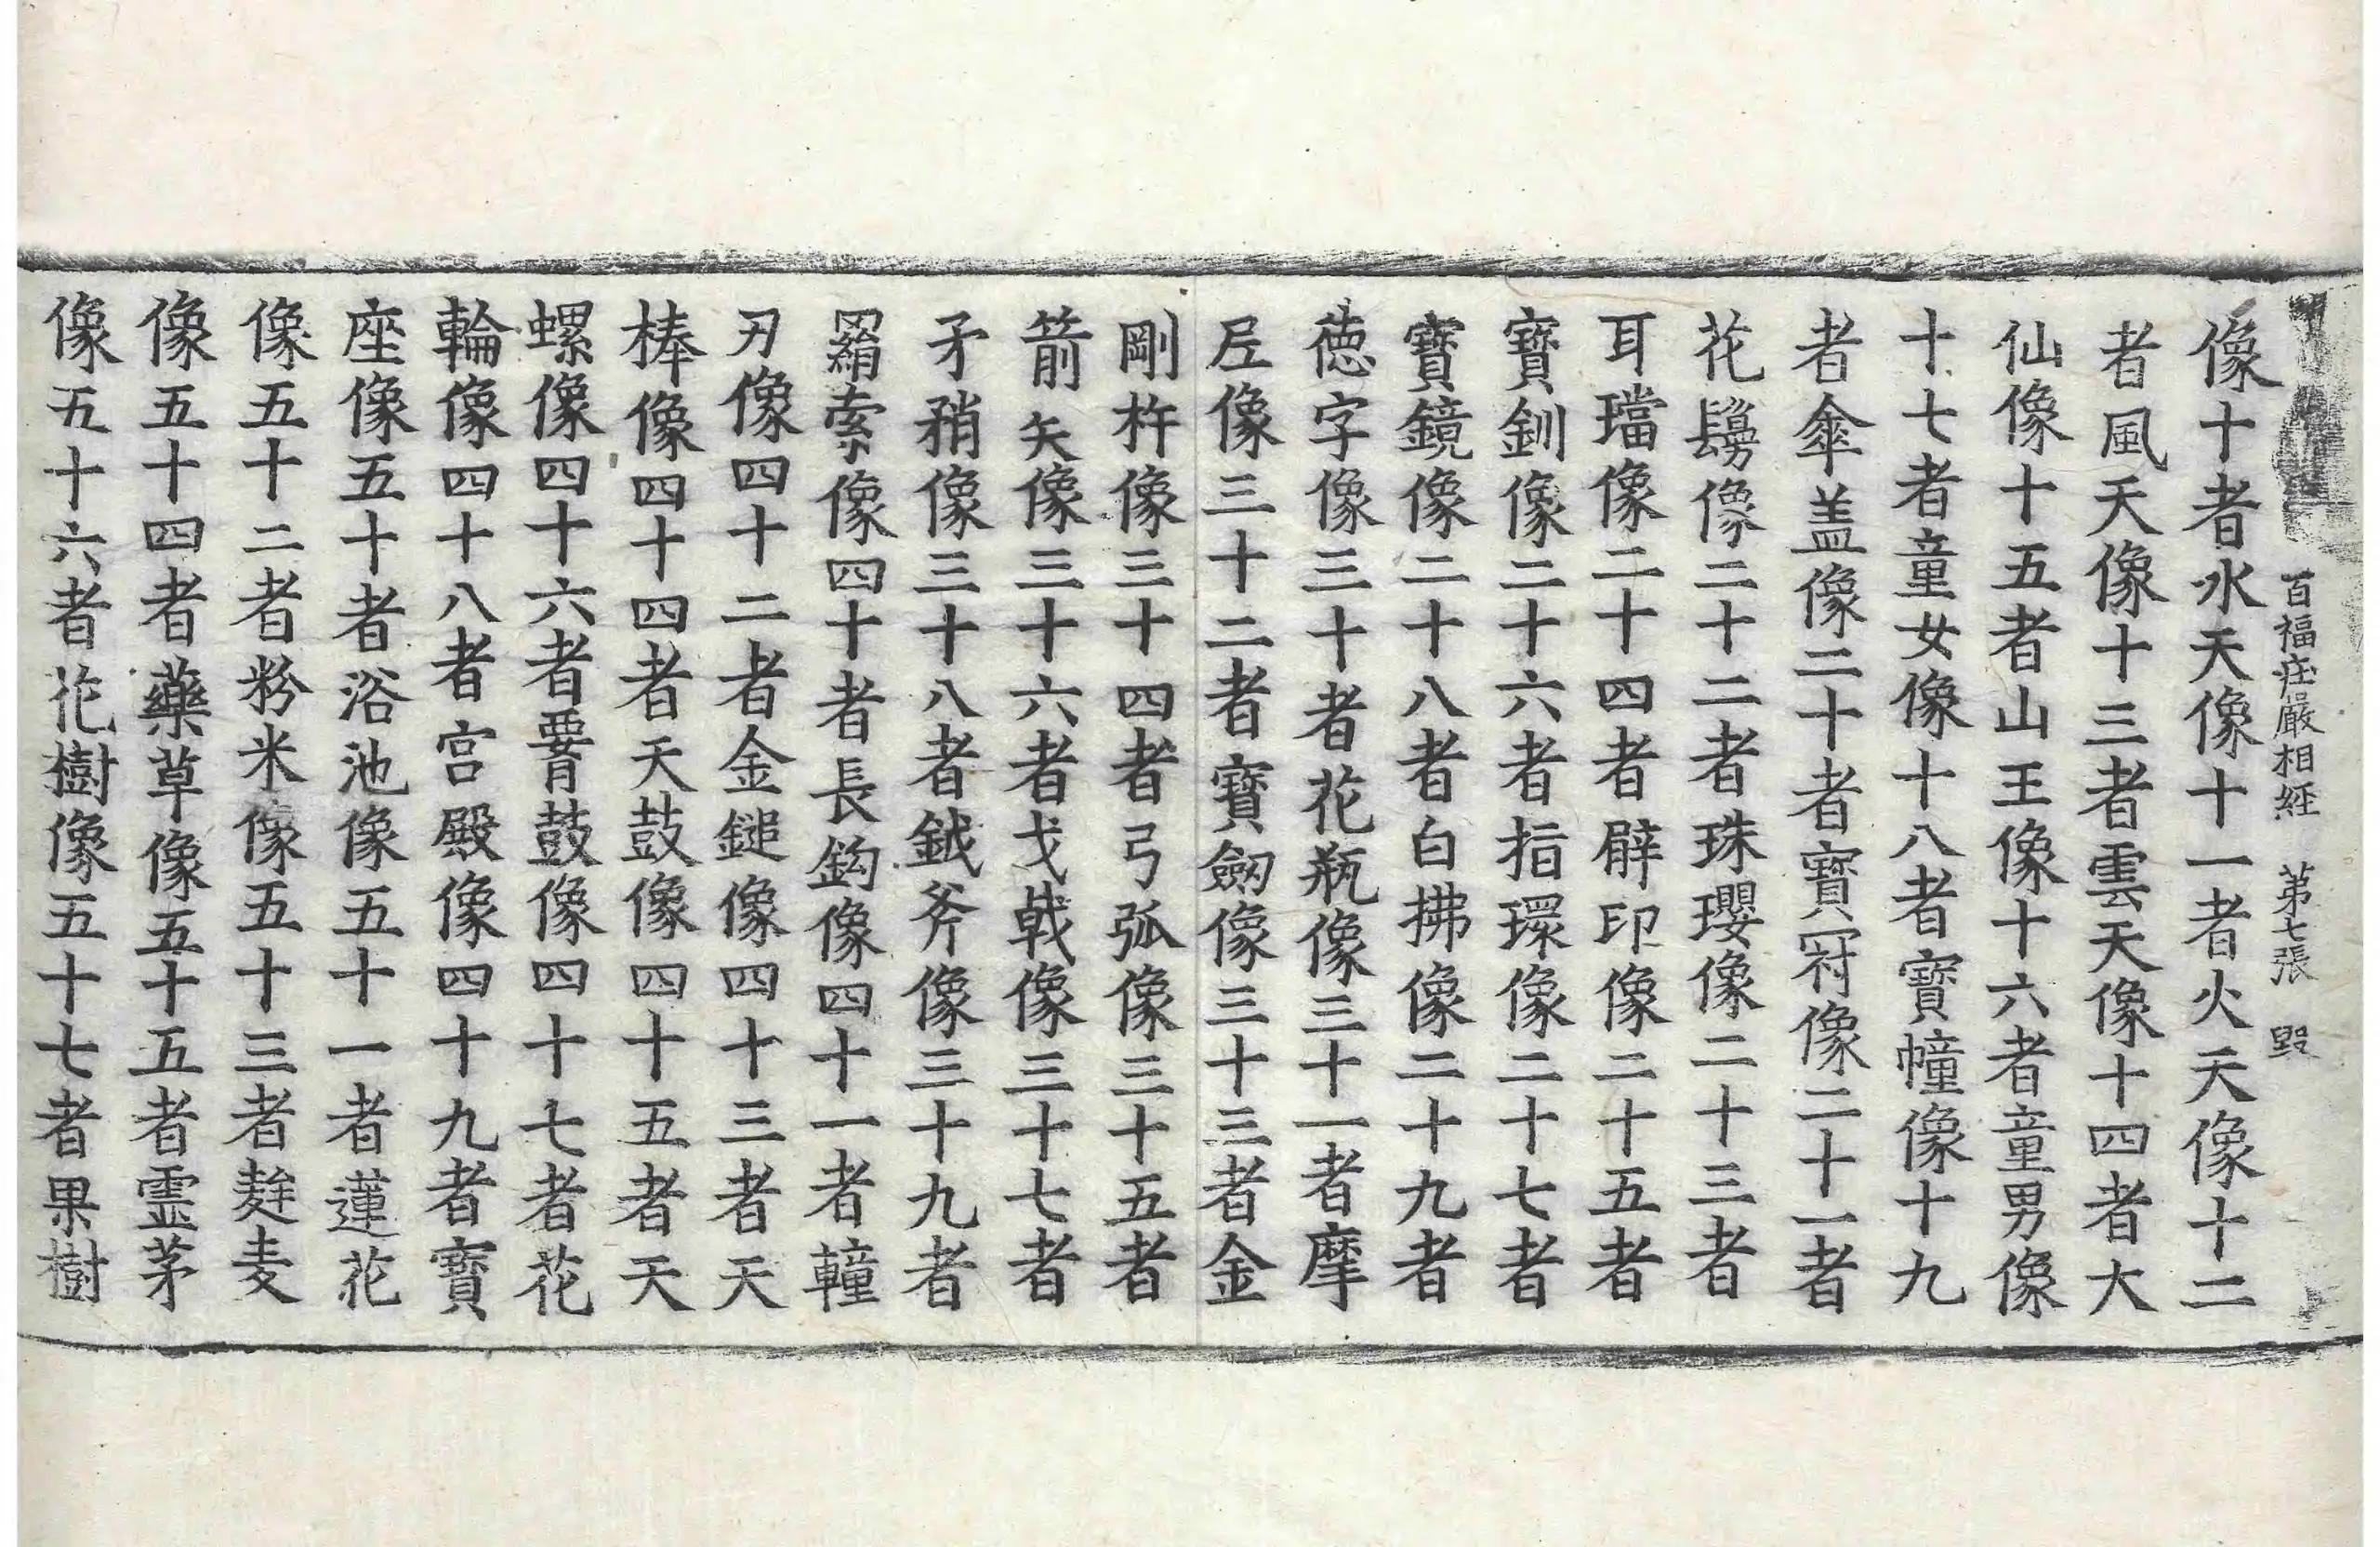 百福庄嚴相經 第七張 毀
像十者水天像十一者火天像十二
者風天像十三者雲天像十四者大
仙像十五者山王像十六者童男像
十七者童女像十八者寶幢像十九
者傘盖像二十者寶冠像二十一者
花鬘像二十二者珠瓔像二十三者
耳璫像二十四者臂印像二十五者
寶釧像二十六者指環像二十七者
寶鏡像二十八者白拂像二十九者
德字像三十者花瓶像三十一者摩
尼像三十二者寶劒像三十三者金
剛杵像三十四者弓弧像三十五者
箭矢像三十六者戈戟像三十七者
矛矟像三十八者鉞斧像三十九者
羂索像四十者長鈎像四十一者
刃像四十二者金鎚像四十三者天
棒像四十四者天鼓像四十五者天
螺像四十六者䙅鼓像四十七者花
輪像四十八者宫殿像四十九者寶
座像五十者浴池像五十一者蓮花
像五十二者粉米像五十三者麰麦
像五十四者藥草像五十五者霊茅
像五十六者花樹像五十七者果樹